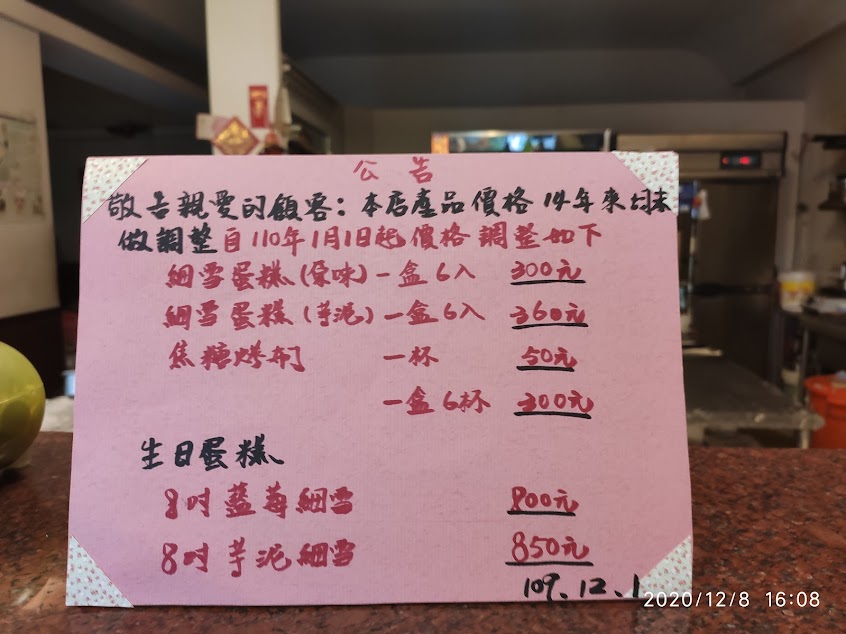 公告
敬告親愛的顧客：本店產品價格14年來均未
做調整自110年1月1日起價格調整如下
細雪蛋糕(原味)一盒6入 300元
細雪蛋糕(芋泥)一盒6入 360元
焦糖烤布 一杯 50元
一盒6杯 300元
生日蛋糕
8吋藍莓細雪 800元
8吋芋泥細雪 850元
109.12.1
2020/12/8 16:08